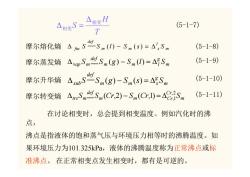 Δ相变S = Δ相变H / T (5-1-7)
摩尔熔化熵 Δ_fus S =def= S_m(l) − S_m(s) = Δ_s^l S_m (5-1-8)
摩尔蒸发熵 Δ_vap S_m =def= S_m(g) − S_m(l) = Δ_l^g S_m (5-1-9)
摩尔升华熵 Δ_sub S =def= S_m(g) − S_m(s) = Δ_s^g S_m (5-1-10)
摩尔转变熵 Δ_trs S_m =def= S_m(Cr,2) − S_m(Cr,1) = Δ_Cr,1^Cr,2 S_m (5-1-11)
在讨论相变时,总会提到相变温度。例如汽化时的沸
点,
沸点是指液体的饱和蒸气压与环境压力相等时的沸腾温度。如
果环境压力为101.325kPa,液体的沸腾温度称为正常沸点或标
准沸点。 在正常相变点发生相变时,都有是可逆的。